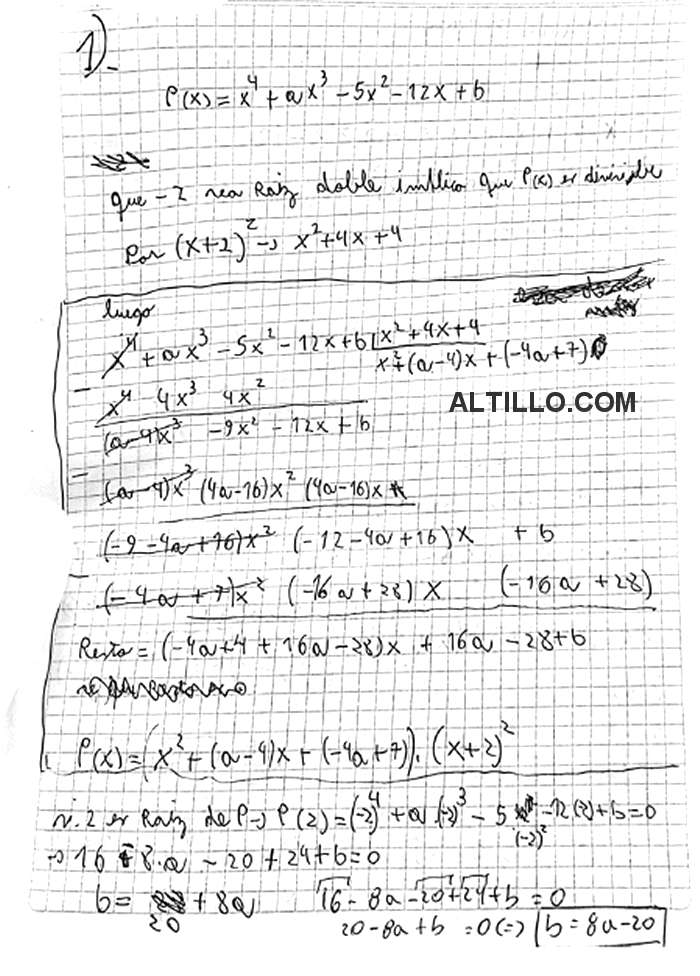 1)
P(x) = x⁴ + ax³ - 5x² - 12x + b
que -2 sea Raiz doble implica que P(x) es divisible
Por (x+2)² → x² + 4x + 4
luego
x⁴ + ax³ - 5x² - 12x + b | x² + 4x + 4
x² + (a-4)x + (-4a+7)
- x⁴ 4x³ 4x²
ALTILLO.COM
(a-4)x³ - 9x² - 12x + b
- (a-4)x³ (4a-16)x² (4a-16)x
(-9-4a+16)x² (-12-4a+16)x + b
- (-4a+7)x² (-16a+28)x (-16a+28)
Resto = (-4a+4+16a-28)x + 16a - 28 + b
P(x) = (x² + (a-4)x + (-4a+7)) · (x+2)²
2 es Raiz de P → P(2) = (-2)⁴ + a·(-2)³ - 5 (-2)² - 12(2) + b = 0
→ 16 - 8·a - 20 + 24 + b = 0
b = 20 + 8a 16 - 8a - 20 + 24 + b = 0
20 - 8a + b = 0 (=) b = 8a - 20